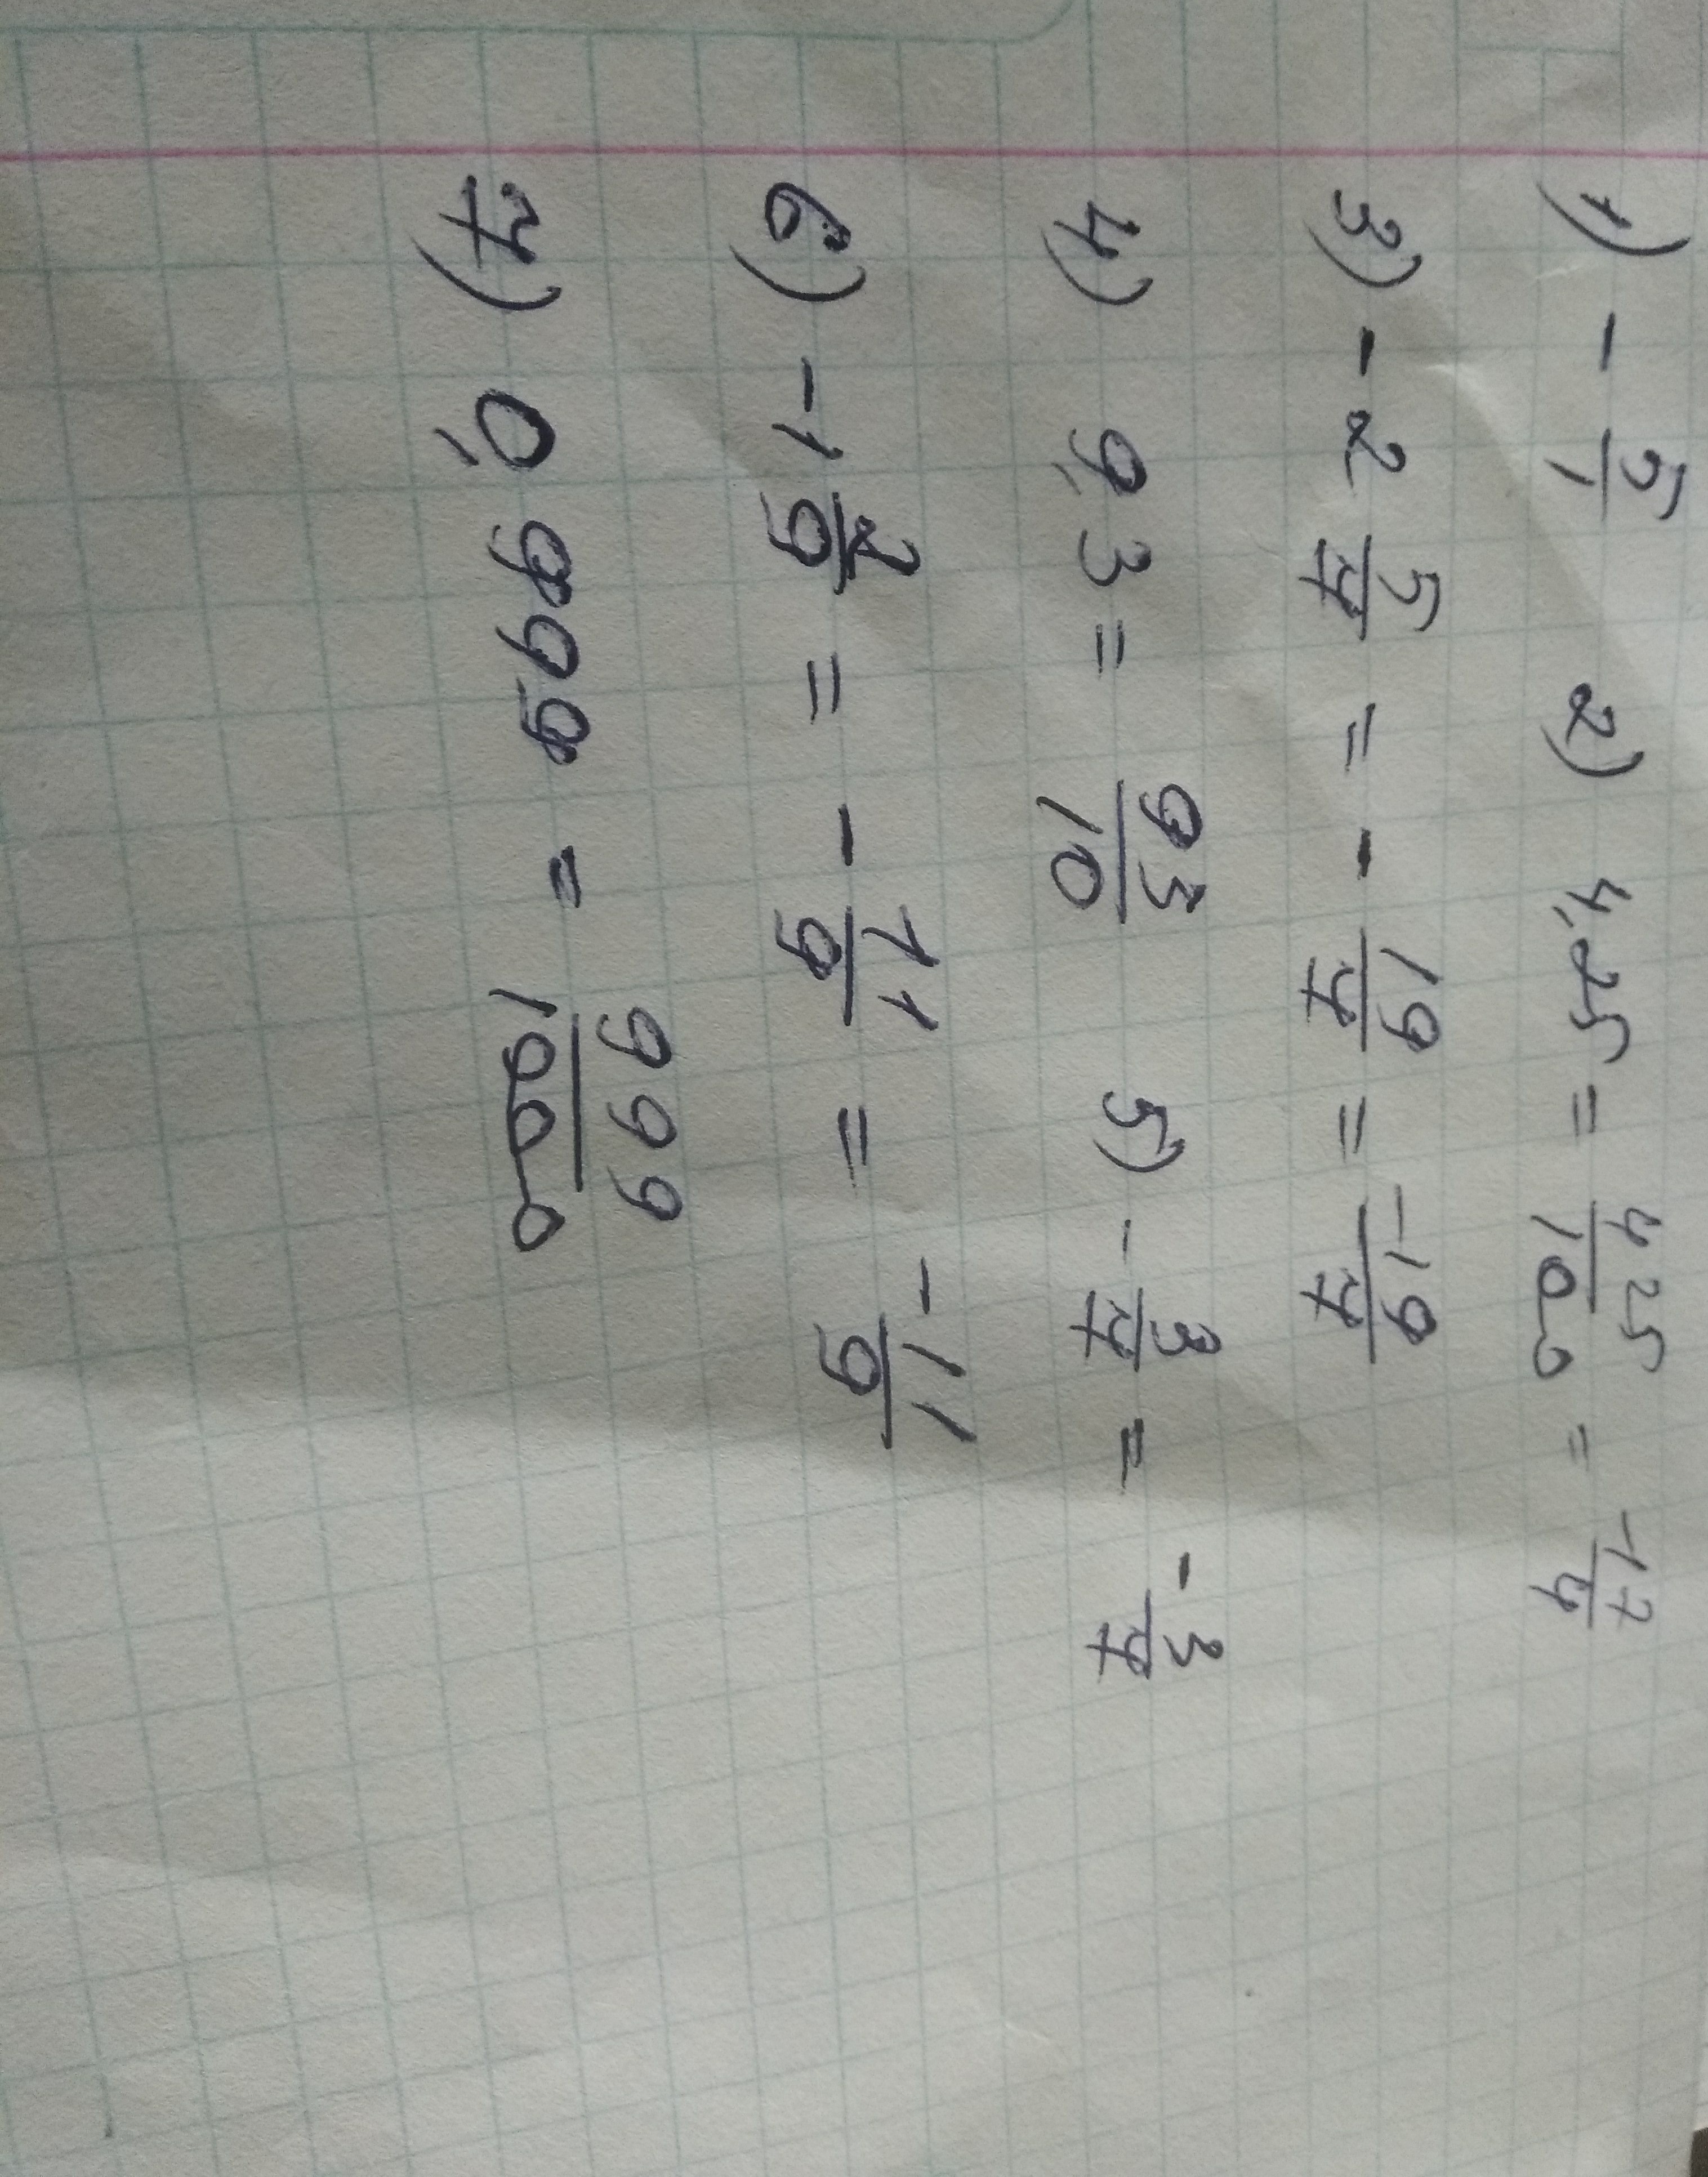 1) -5/1 2) 4,25 = 425/100 = -17/4
3) -2 5/7 = - 19/7 = -19/7
4) 9,3 = 93/10 5) - 3/7 = -3/7
6) -1 2/9 = - 11/9 = -11/9
7) 0,999 = 999/1000